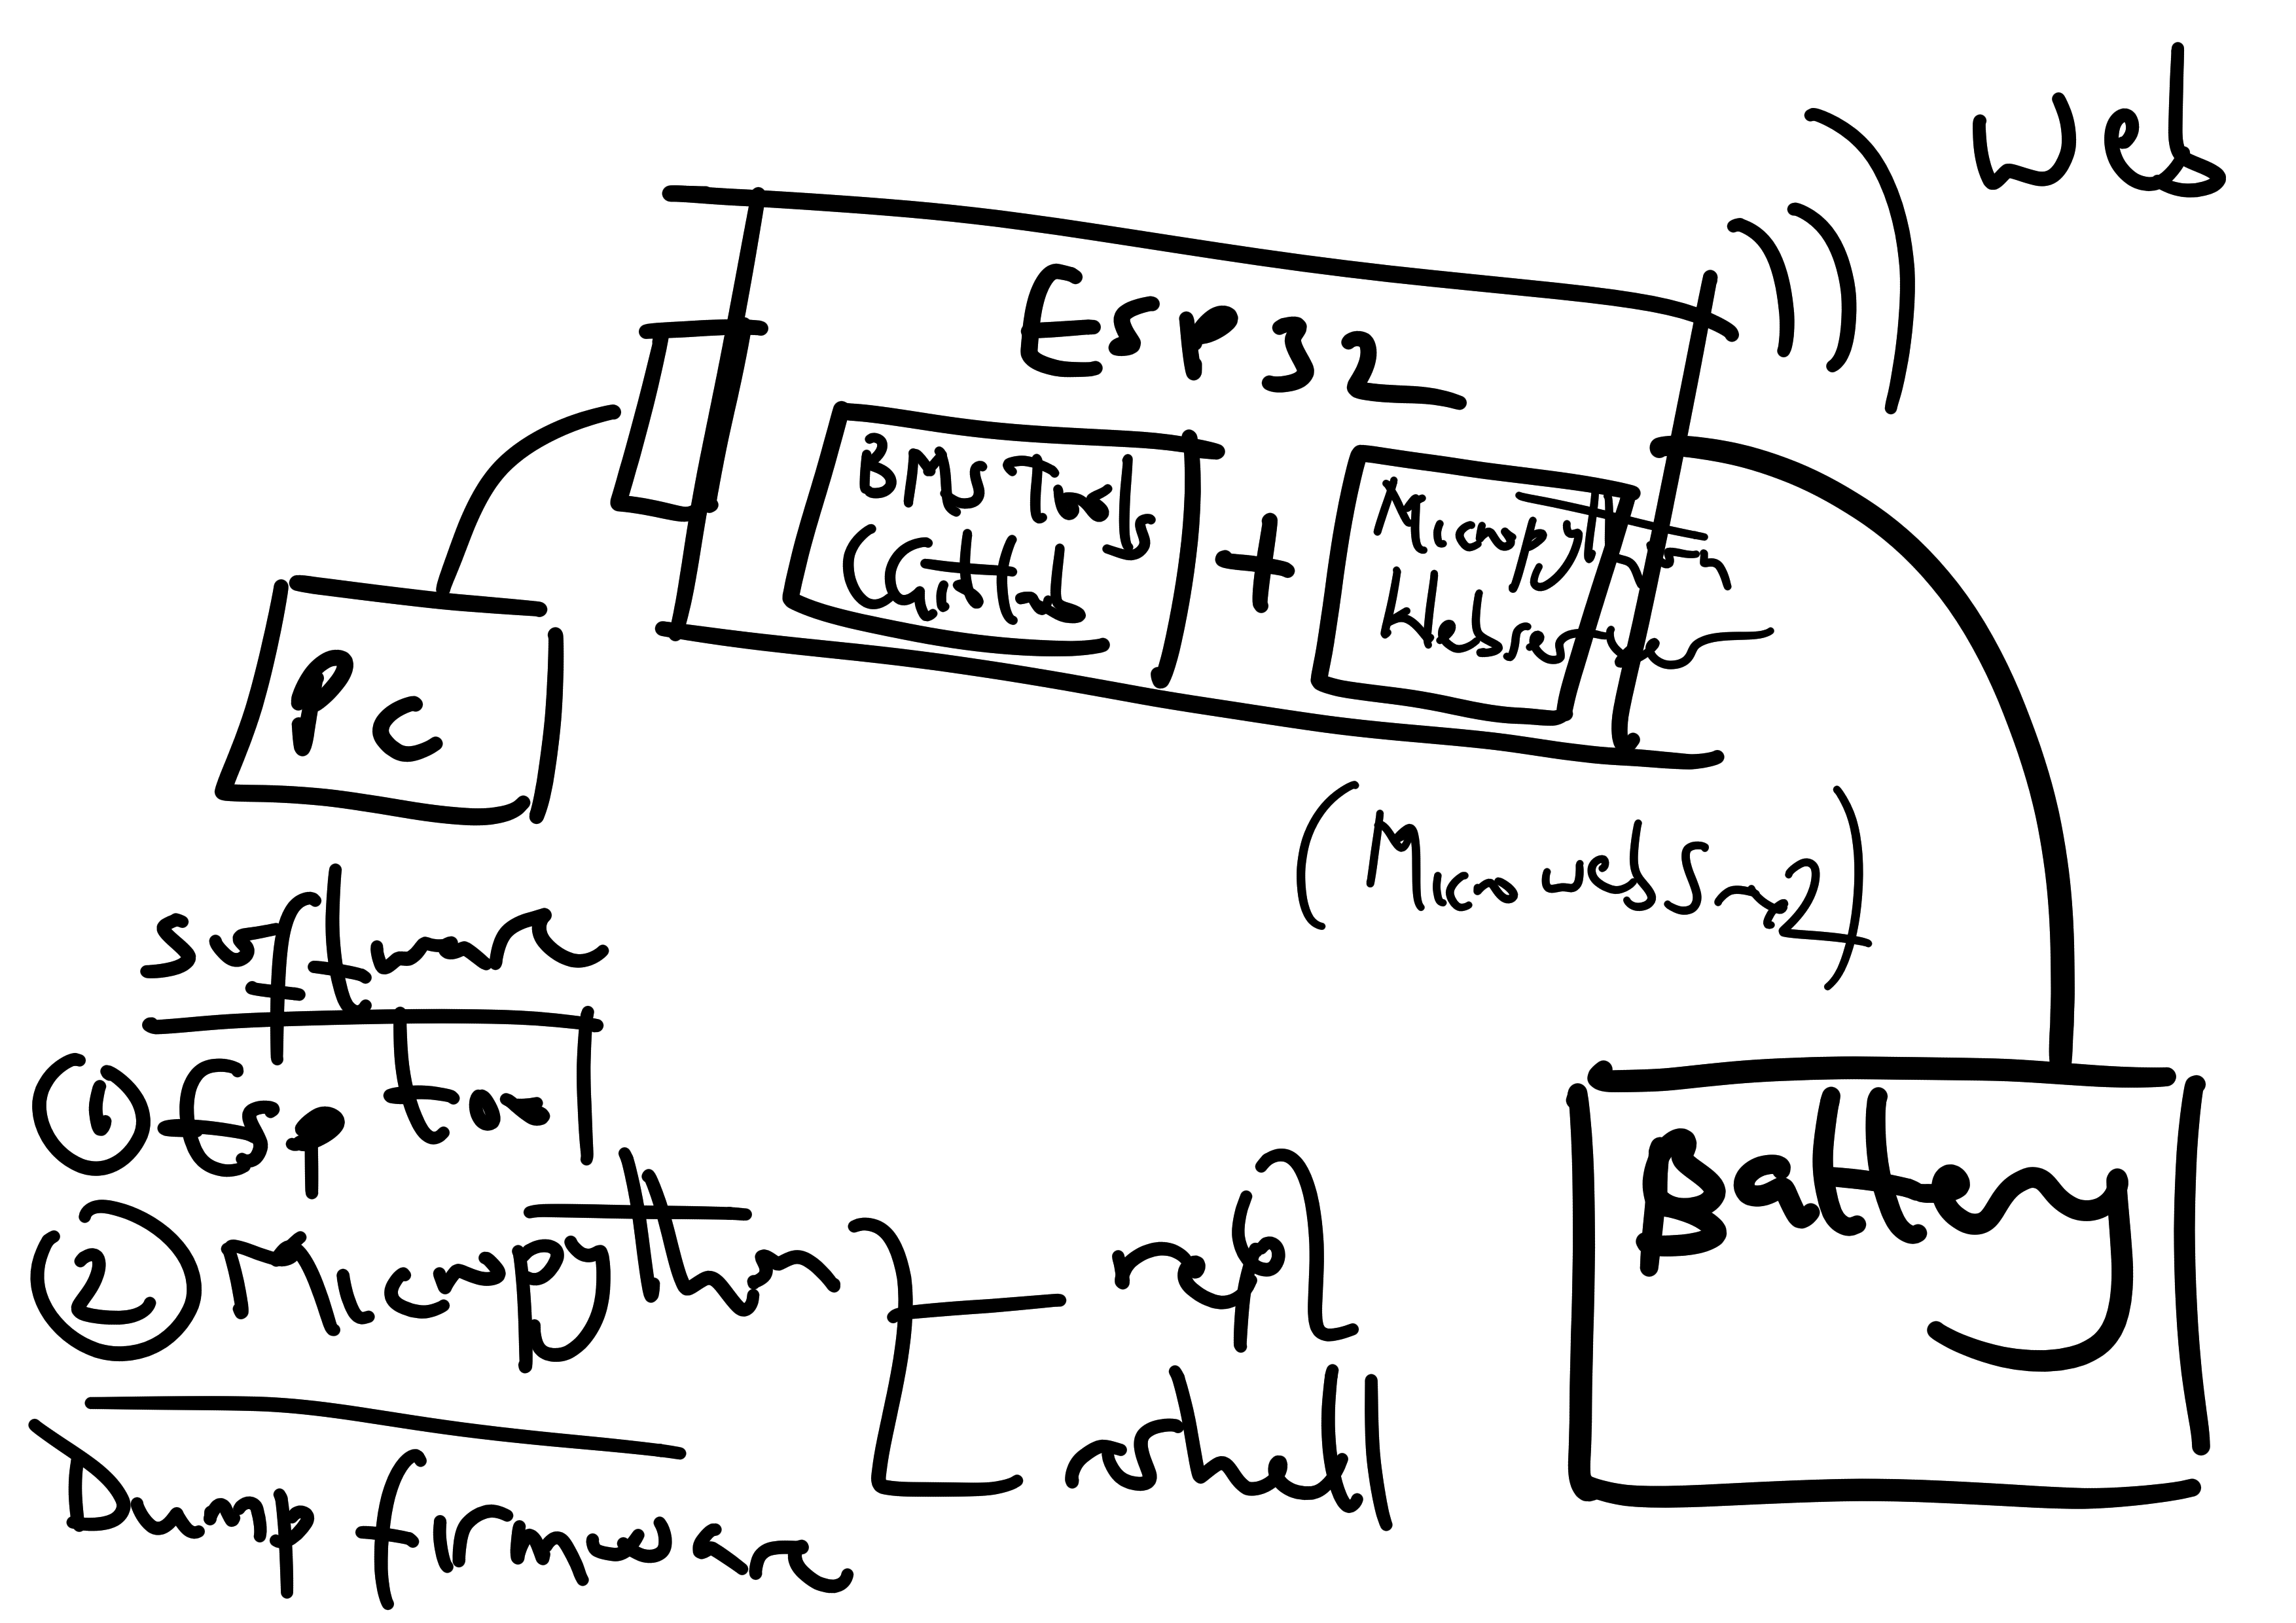 Web
ESP32
BMS Tools
(GitHub
+
Micropython
Webserver
PC
(MicroWebSrv2)
software
① Esp Tool
② Micropython
repl
rshell
Battery
Dump firmware